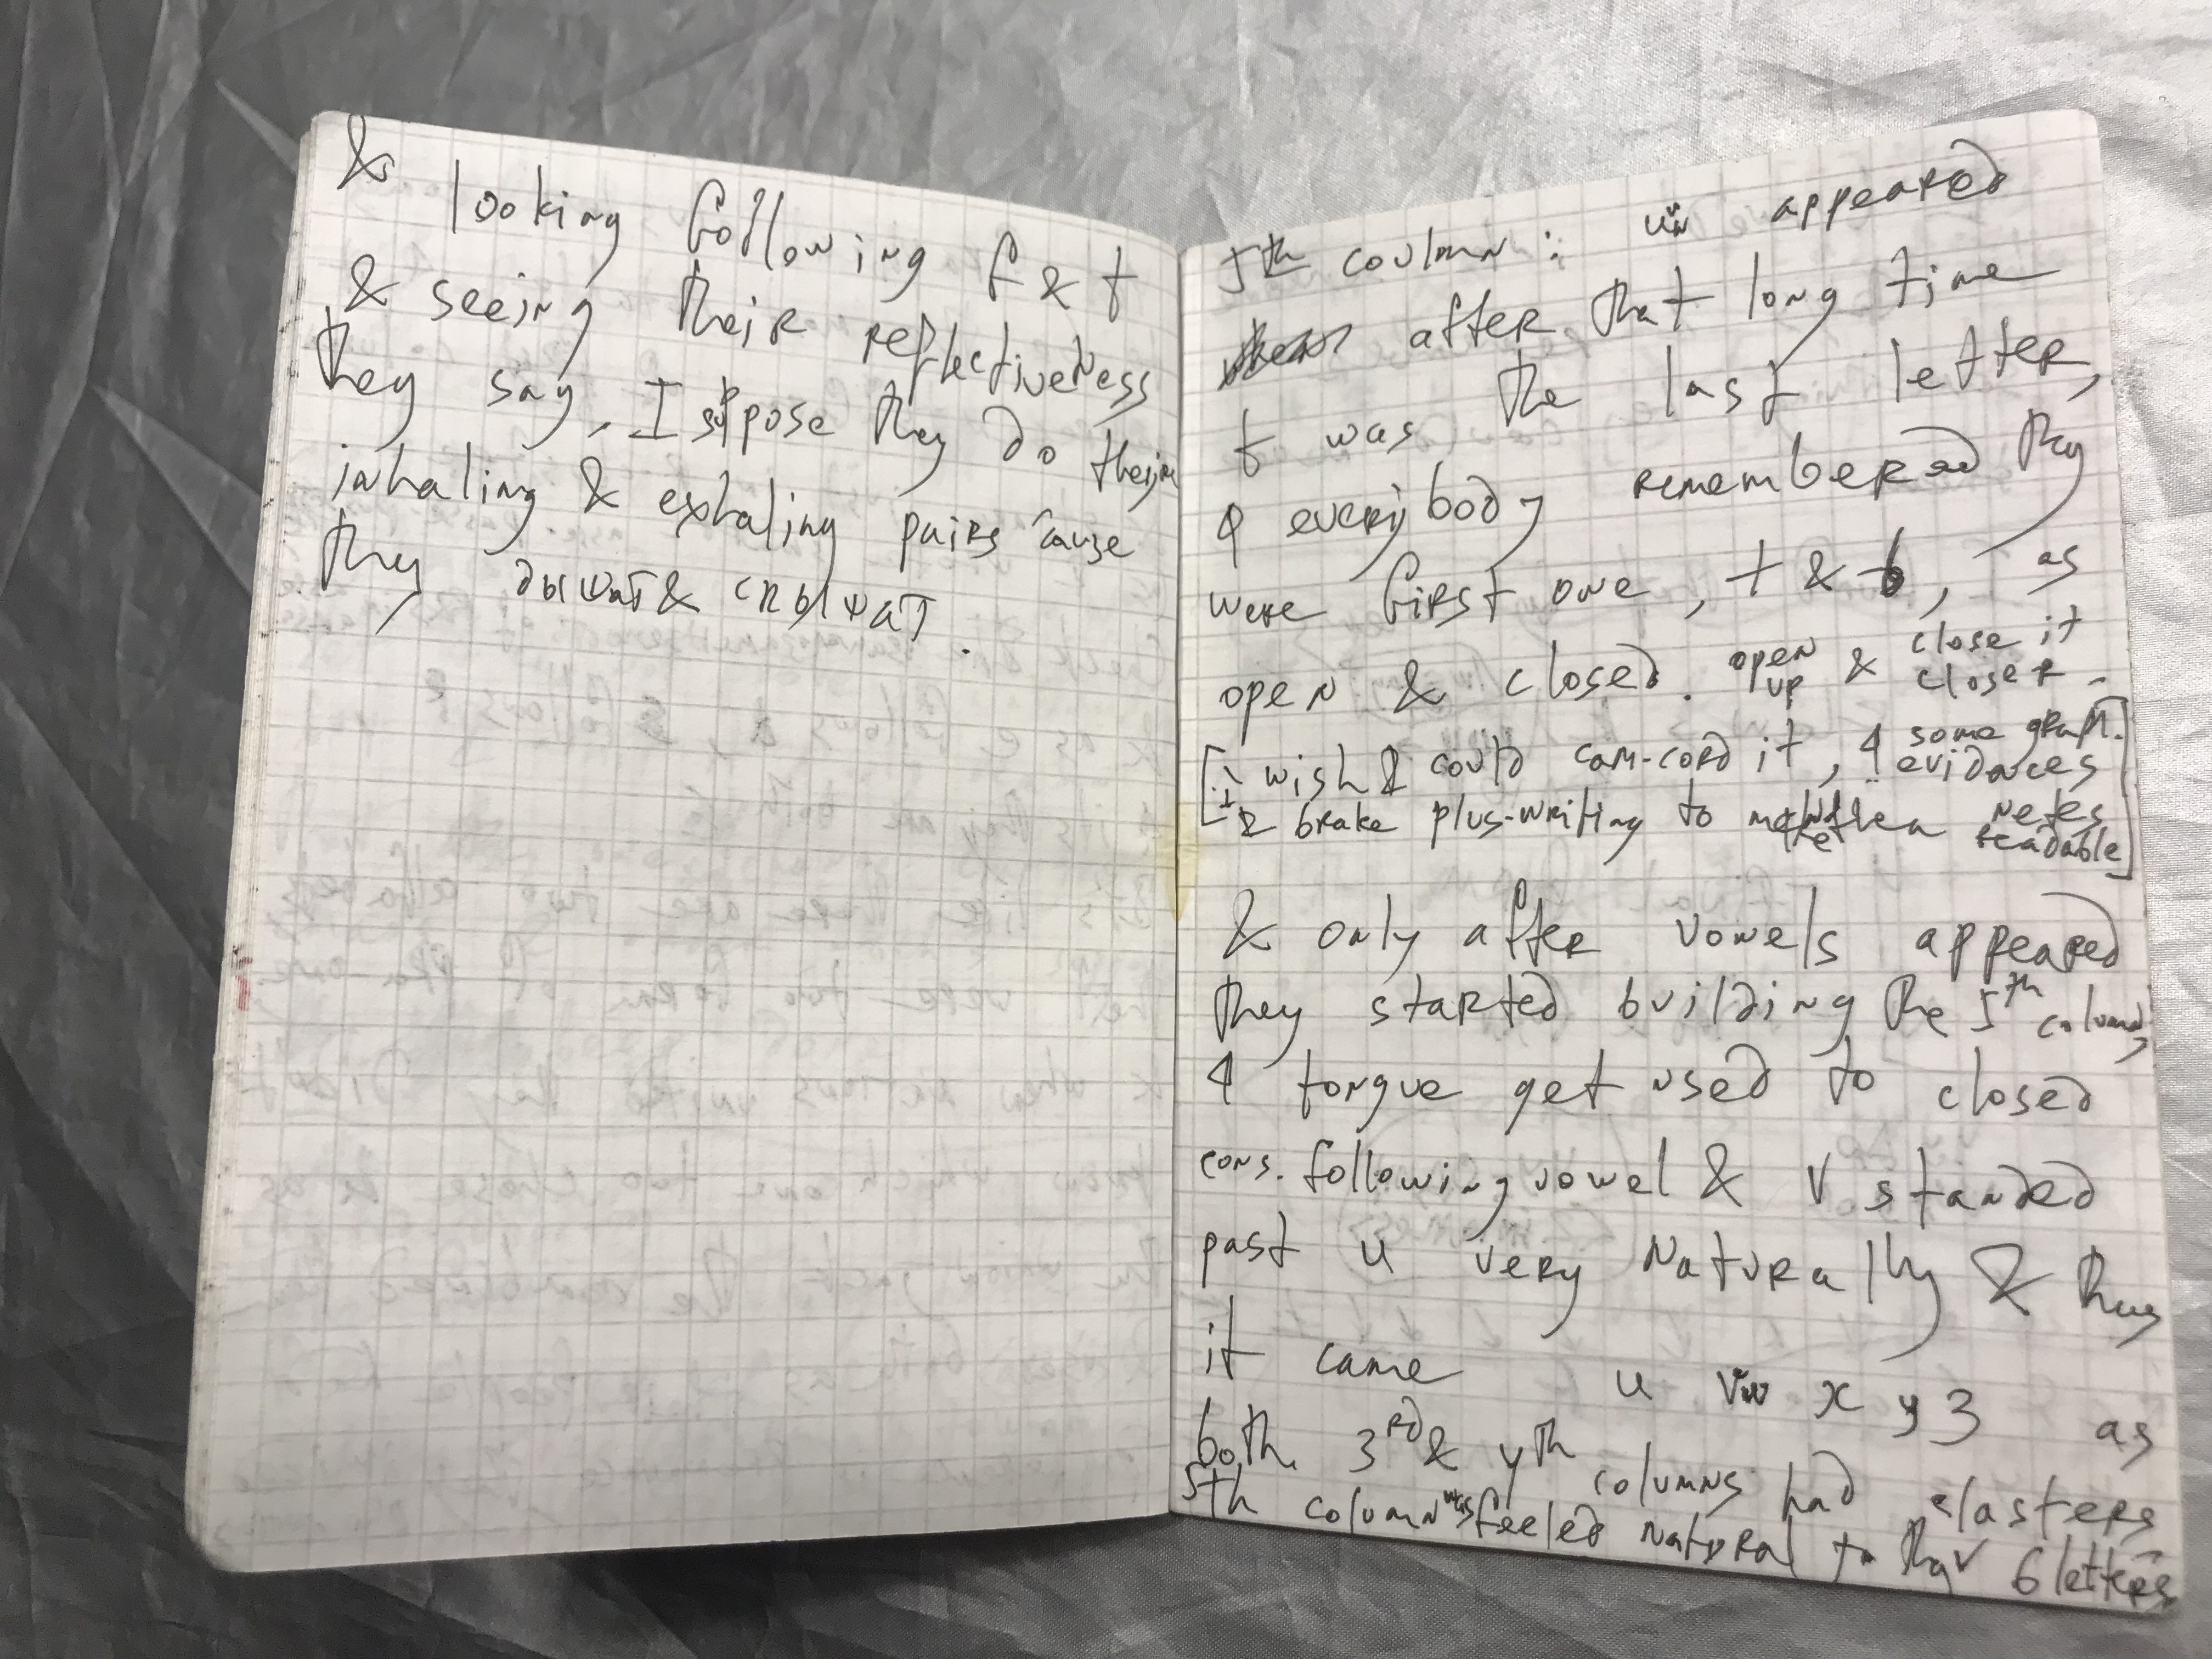 & looking following f & t
& seeing their reflectivedess
they say, I suppose they do their
inhaling & exhaling pairs cause
they
5th coulmn: appeared
after that long time
was the last letter,
& everybody remembered they
were first one, t & b, as
open & closed. open & close it
up & closet.
[i wish I could cam-cord it, some gram.
evidances
brake plus-writing to make then notes readable]
& only after vowels appeared
they started building the 5th column,
& tongue get used to closed
cons. following vowel & v standed
past u very naturally & thus
it came u x y 3 as
both 3rd & 4th columns had clasters
5th column was feeled natural to hav 6 letters